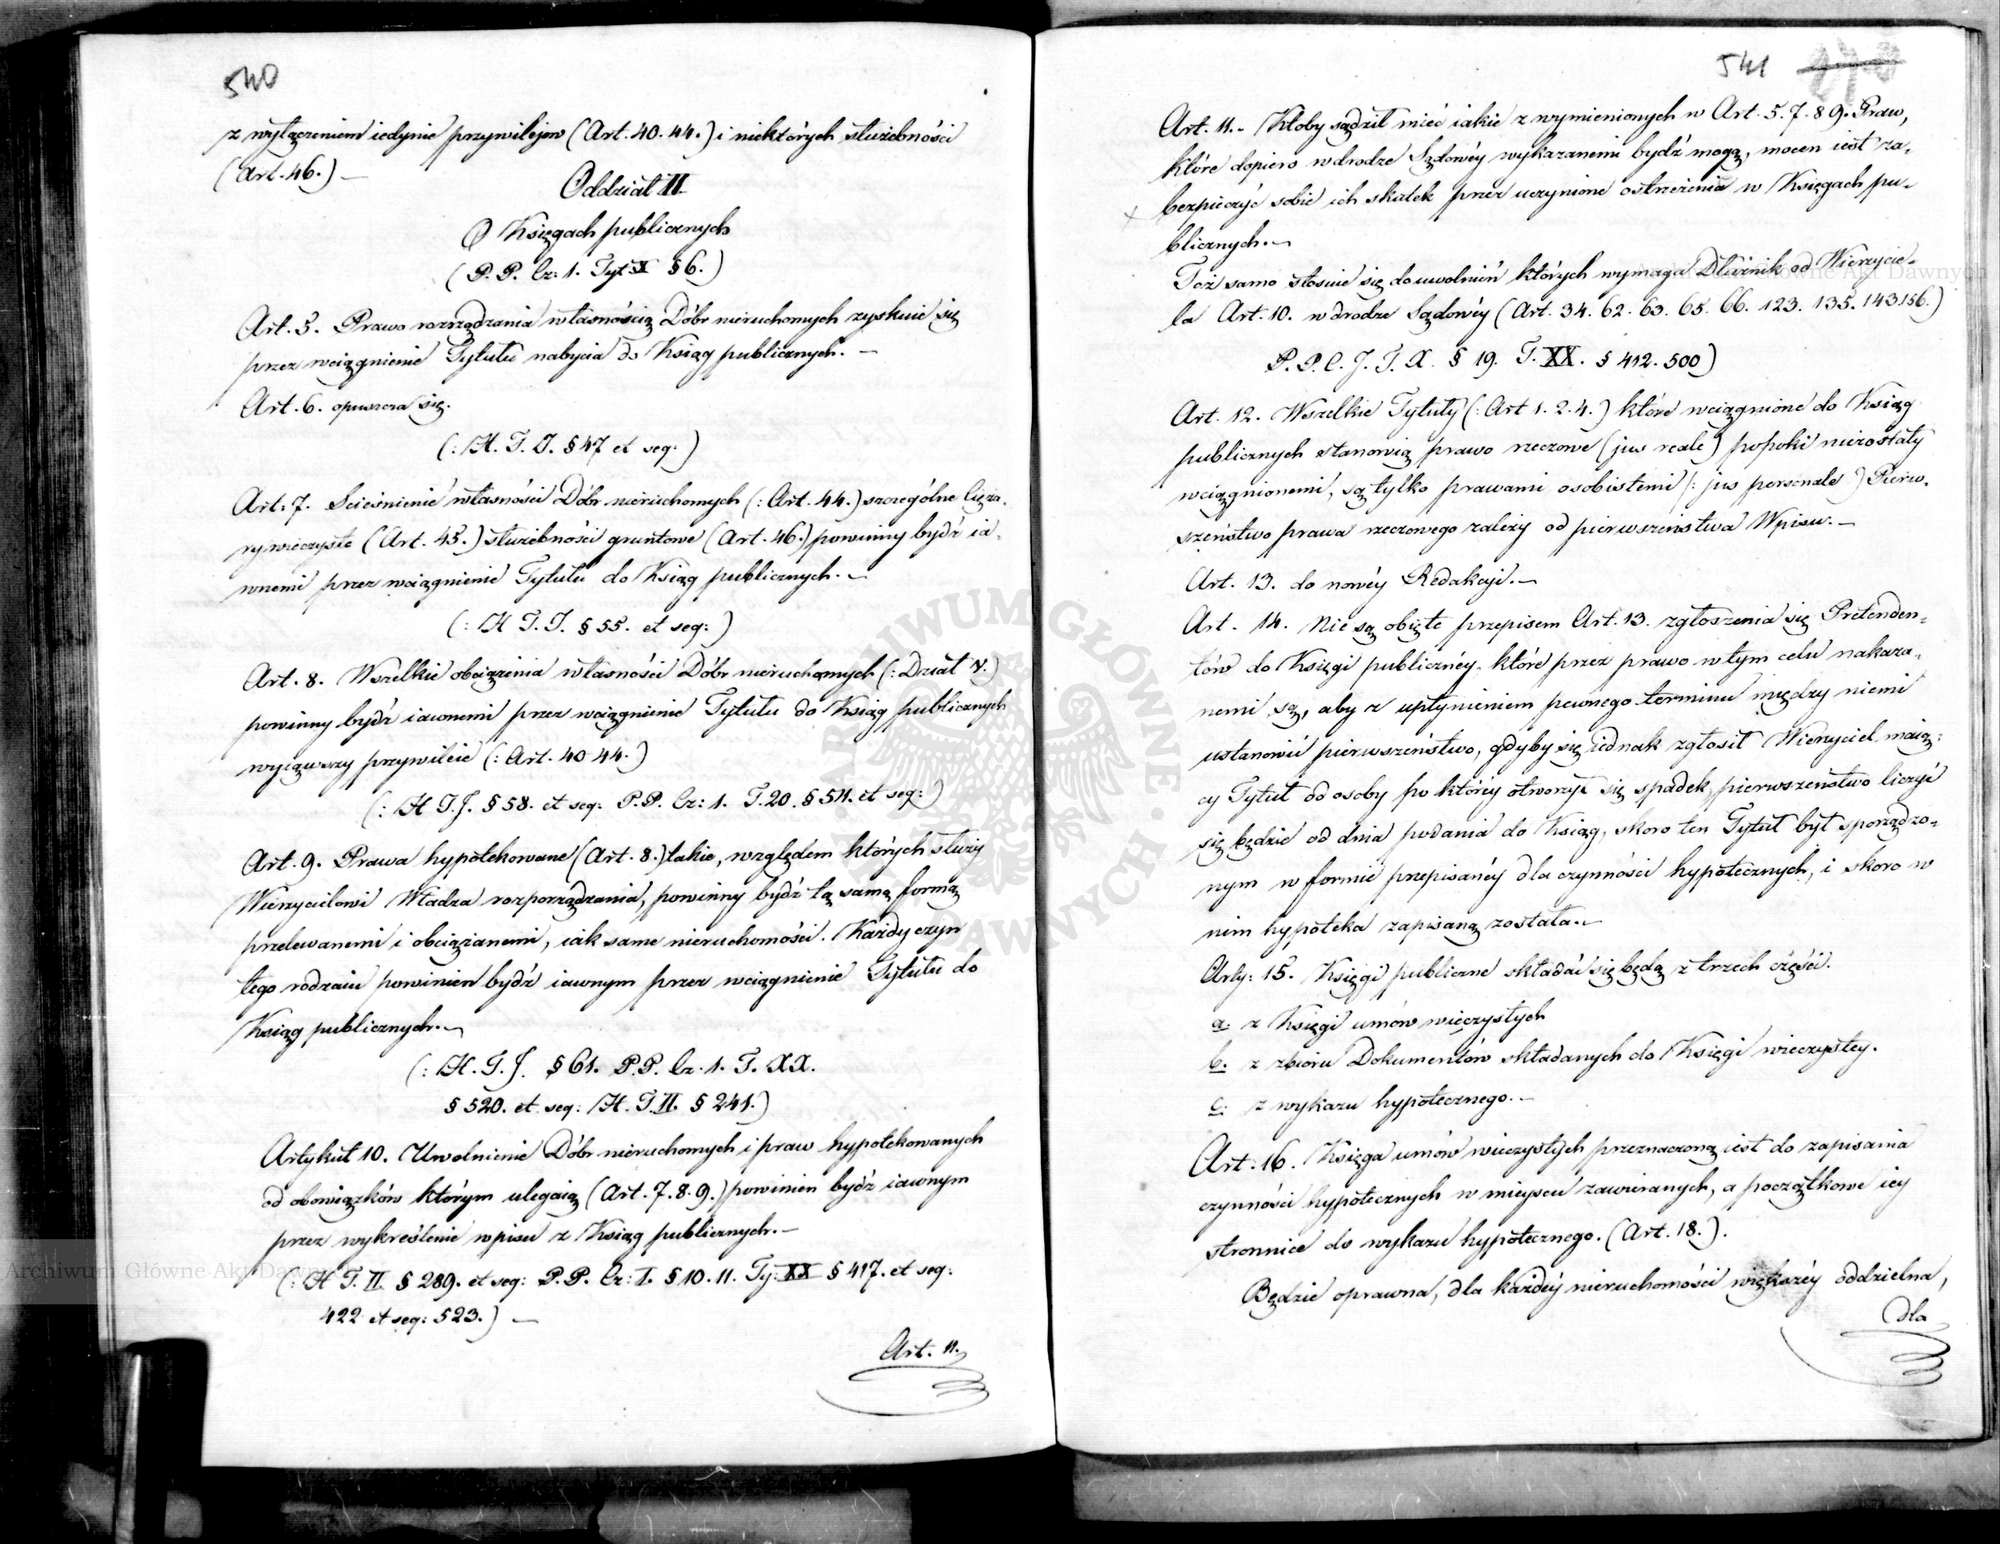 540
z wyłączeniem iedynie przywilejow (Art. 40. 44.) i niektórych służebności
(Art. 46.) —
Oddział II
O Księgach publicznych
(P. P. Cz: 1. Tyt: X § 6.)
Art. 5. Prawo rozrządzania własnością Dóbr nieruchomych zyskuie się
przez wciągnienie Tytułu nabycia do Ksiąg publicznych. —
Art. 6. opuszcza się.
(: H. T. I. § 47 et seq: )
Art: 7. Scieśnienie własności Dóbr nieruchomych (: Art. 44.) szczególne Cięża-
ry wieczyste (Art. 45.) służebności gruntowe (Art. 46.) powinny bydź ia-
wnemi przez wciągnienie Tytułu do Ksiąg publicznych. —
(: H T. I. § 55. et seq: )
Art. 8. Wszelkie obciążenia własności Dóbr nieruchomych (: Dział V.)
powinny bydź iawnemi przez wciągnienie Tytułu do Ksiąg publicznych
wyiąwszy przywileie (: Art. 40 44.)
(: H T. I. § 58. et seq: P. P. Cz: 1. T. 20. § 511. et seq: )
Art. 9. Prawa hypotekowane (Art. 8.) takie, względem których służy
Wierzycielowi Władza rozporządzania, powinny bydź tą samą formą
przelewanemi i obciążanemi, iak same nieruchomości. Każdy czyn
tego rodzaiu powinien bydź iawnym przez wciągnienie Tytułu do
Ksiąg publicznych. —
(: H. T. I. § 61. P. P. Cz. 1. T. XX.
§ 520. et seq: H. T. II. § 241.)
Artykuł 10. Uwolnienie Dóbr nieruchomych i praw hypotekowanych
od obowiązków którym ulegaią (Art. 7. 8. 9.) powinien bydź iawnym
przez wykreślenie wpisu z Ksiąg publicznych. —
(: H T. II. § 289. et seq: P. P. Cz: I. § 10. 11. Ty: XX § 417. et seq:
422 et seq: 523.) —
Art. 11.
541
Art. 11. - Ktoby sądził mieć iakie z wymienionych w Art. 5. 7. 8 9. Praw,
które dopiero w drodze Sądowéy wykazanemi bydź mogą, mocen iest za-
bezpieczyć sobie ich skutek przez uczynione ostrzeżenia w Księgach pu-
blicznych. —
Toż samo stosuie się do uwolnień których wymaga Dłużnik od Wierzycie-
la Art. 10. w drodze Sądowéy (Art. 34. 62. 63. 65. 66. 123. 135. 143 156.)
P. P. C. I. T. X. § 19. T. XX. § 412. 500)
Art. 12. Wszelkie Tytuły (: Art 1. 2. 4.) które wciągnione do Ksiąg
publicznych stanowią prawo rzeczowe (jus reale) popoki niezostały
wciągnionemi, są tylko prawami osobistemi (: jus personale) Pierw-
szeństwo prawa rzeczowego zależy od pierwszeństwa Wpisu. —
Art. 13. do nowéy Redakcyi. —
Art. 14. Nie są obięte przepisem Art. 13. zgłoszenia się Pretenden-
tów do Księgi publicznéy, które przez prawo w tym celu nakaza-
nemi są, aby z upłynieniem pewnego terminu między niemi
ustanowić pierwszeństwo, gdyby się iednak zgłosił Wierzyciel maią-
cy Tytuł od osoby po któréy otworzył się spadek, pierwszeństwo liczyć
się będzie od dnia podania do Ksiąg, skoro ten Tytuł był sporządzo-
nym w formie przepisanéy dla czynności hypotecznych, i skoro w
nim hypoteka zapisaną została. —
Arty: 15. Księgi publiczne składać się będą z trzech części.
a: z Księgi umów wieczystych
b. z zbioru Dokumentów składanych do Księgi wieczystey.
c: z wykazu hypotecznego. —
Art: 16. Księga umów wieczystych przeznaczoną iest do zapisania
czynności hypotecznych w mieyscu zawieranych, a początkowe iey
stronnice do wykazu hypotecznego. (Art. 18.).
Będzie oprawna, dla każdéy nieruchomości większéy oddzielna,
dla
Archiwum Główne Akt Dawnych